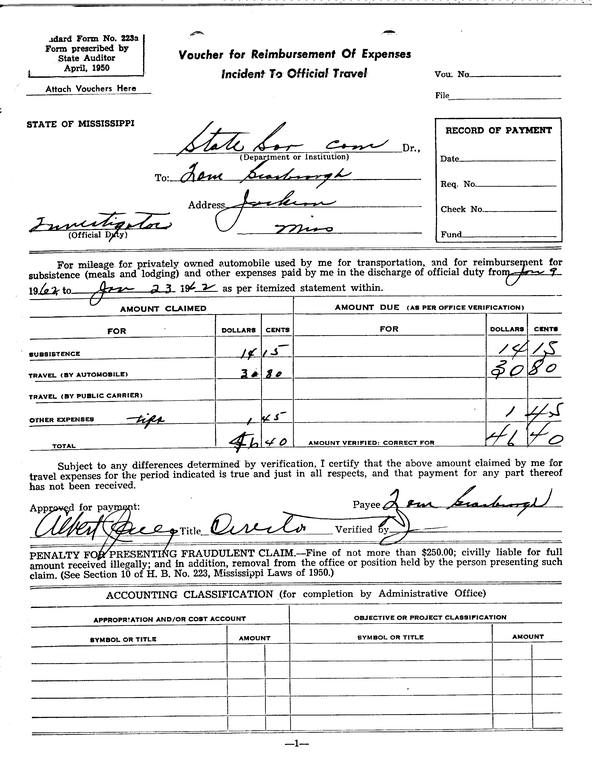 dard Form No. 223a
Form prescribed by
State Auditor
April, 1950
Attach Vouchers Here
Voucher for Reimbursement Of Expenses
Incident To Official Travel
Vou. No.
File
STATE OF MISSISSIPPI
State Sov com Dr.,
(Department or Institution)
To: Tom Scarbrough
Address Jackson
Miss
Investigator
(Official Duty)
RECORD OF PAYMENT
Date
Req. No.
Check No.
Fund
For mileage for privately owned automobile used by me for transportation, and for reimbursement for
subsistence (meals and lodging) and other expenses paid by me in the discharge of official duty from Jan 9
1962 to Jan 23 1962 as per itemized statement within.
AMOUNT CLAIMED AMOUNT DUE (AS PER OFFICE VERIFICATION)
FOR DOLLARS CENTS FOR DOLLARS CENTS
SUBSISTENCE 14 15 14 15
TRAVEL (BY AUTOMOBILE) 30 80 30 80
TRAVEL (BY PUBLIC CARRIER)
OTHER EXPENSES tips 1 45 1 45
TOTAL 46 40 AMOUNT VERIFIED: CORRECT FOR 46 40
Subject to any differences determined by verification, I certify that the above amount claimed by me for
travel expenses for the period indicated is true and just in all respects, and that payment for any part thereof
has not been received.
Approved for payment: Payee Tom Scarbrough
Albert Title Director Verified by
PENALTY FOR PRESENTING FRAUDULENT CLAIM.—Fine of not more than $250.00; civilly liable for full
amount received illegally; and in addition, removal from the office or position held by the person presenting such
claim. (See Section 10 of H. B. No. 223, Mississippi Laws of 1950.)
ACCOUNTING CLASSIFICATION (for completion by Administrative Office)
APPROPRIATION AND/OR COST ACCOUNT OBJECTIVE OR PROJECT CLASSIFICATION
SYMBOL OR TITLE AMOUNT SYMBOL OR TITLE AMOUNT
—1—